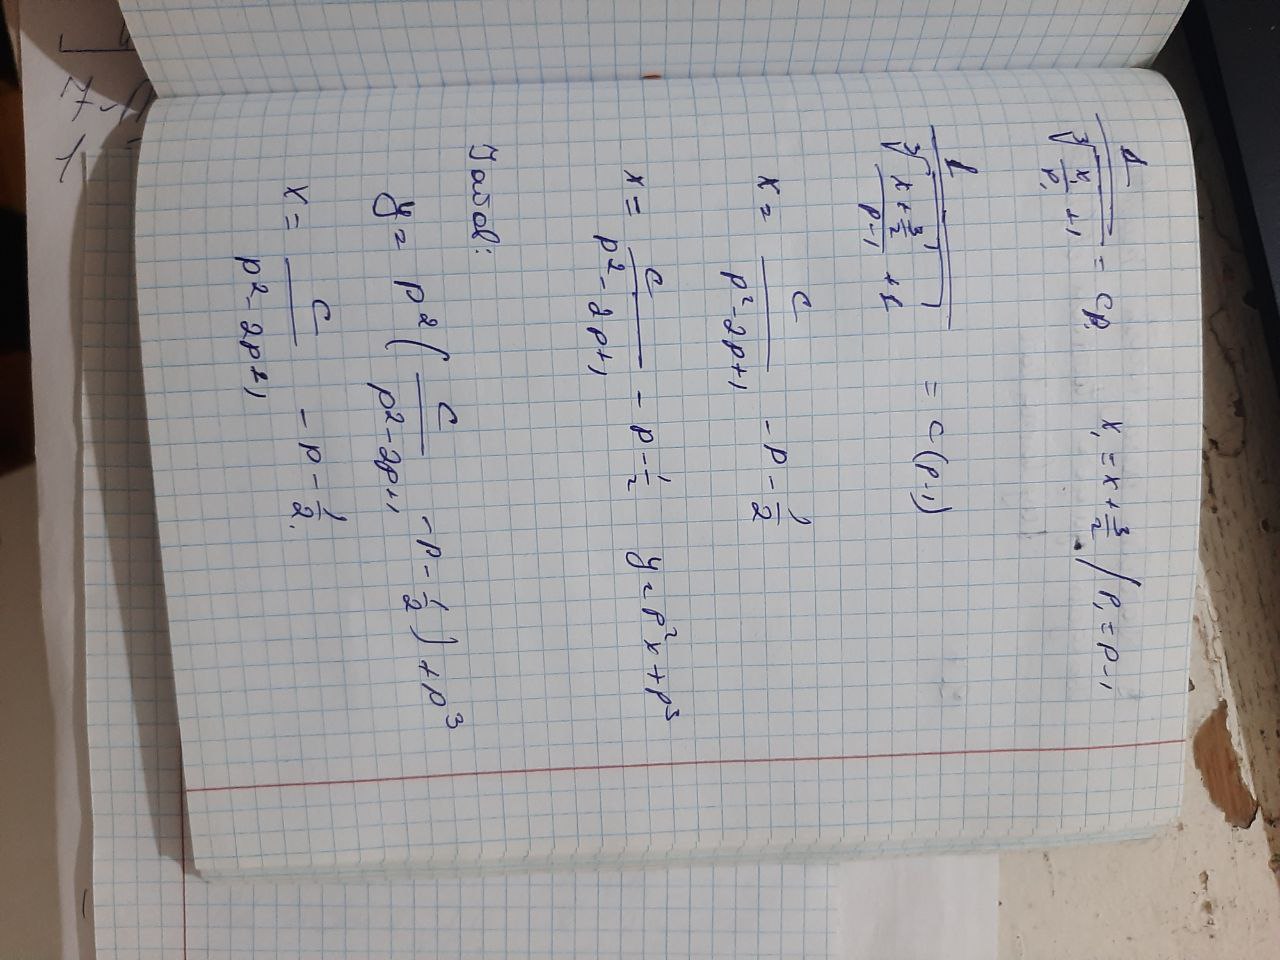 1/∛(x₁/p₁ + 1) = cp₁ x₁ = x + 3/2 / p₁ = p - 1
1/∛((x + 3/2)/(p - 1) + 1) = c(p - 1)
x = c/(p² - 2p + 1) - p - 1/2
x = c/(p² - 2p + 1) - p - 1/2 y = p²x + p³
Javob:
y = p²(c/(p² - 2p + 1) - p - 1/2) + p³
x = c/(p² - 2p + 1) - p - 1/2.